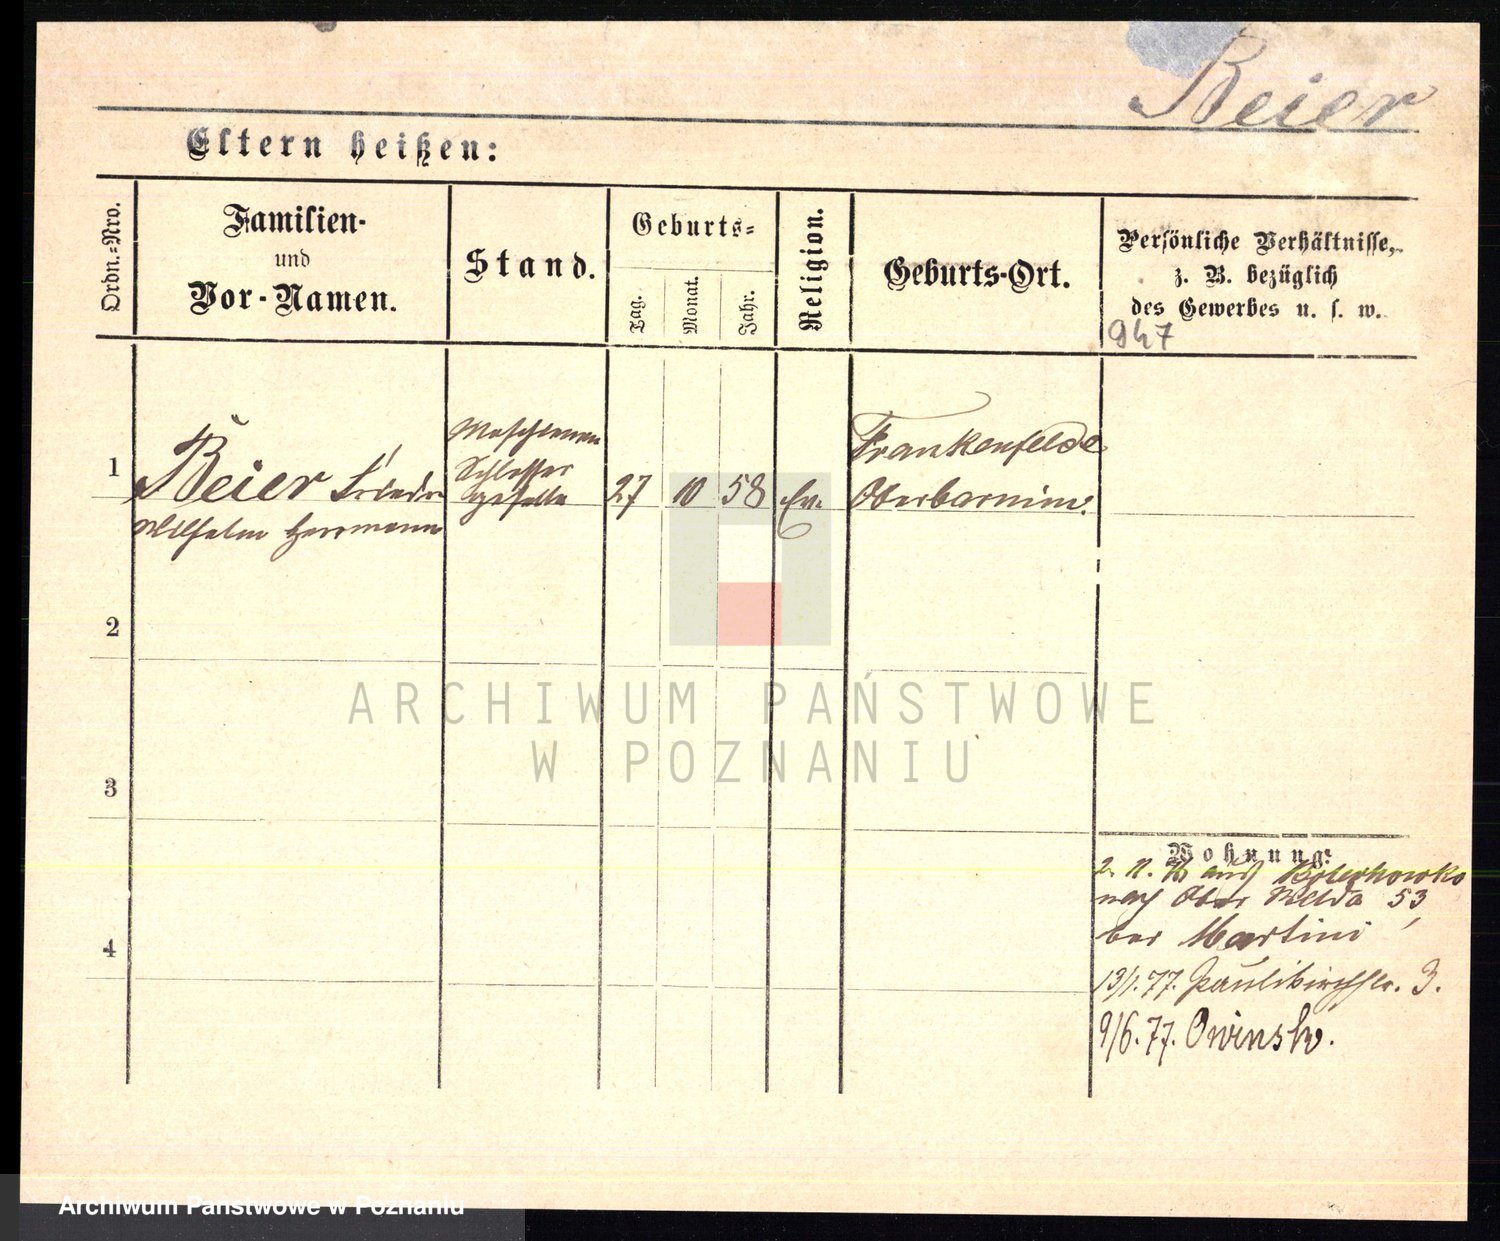 Beier
Eltern heißen:
Ordn.-Nro.
Familien-
und
Vor-Namen.
Stand.
Geburts-
Tag.
Monat.
Jahr.
Religion.
Geburts-Ort.
Persönliche Verhältnisse,
z. B. bezüglich
des Gewerbes u. s. w.
947
1
Beier
Wilhelm Herrmann
Maschinen
Schlosser
Geselle
27
10
58
Ev.
Frankenfelde
Oberbarnim.
2
3
4
Wohnung:
aus
nach Ober Wilda 53
bei Martini
13/1. 77. Paulikirchstr. 3.
9/6. 77. Owinsk.
ARCHIWUM PAŃSTWOWE
W POZNANIU
Archiwum Państwowe w Poznaniu